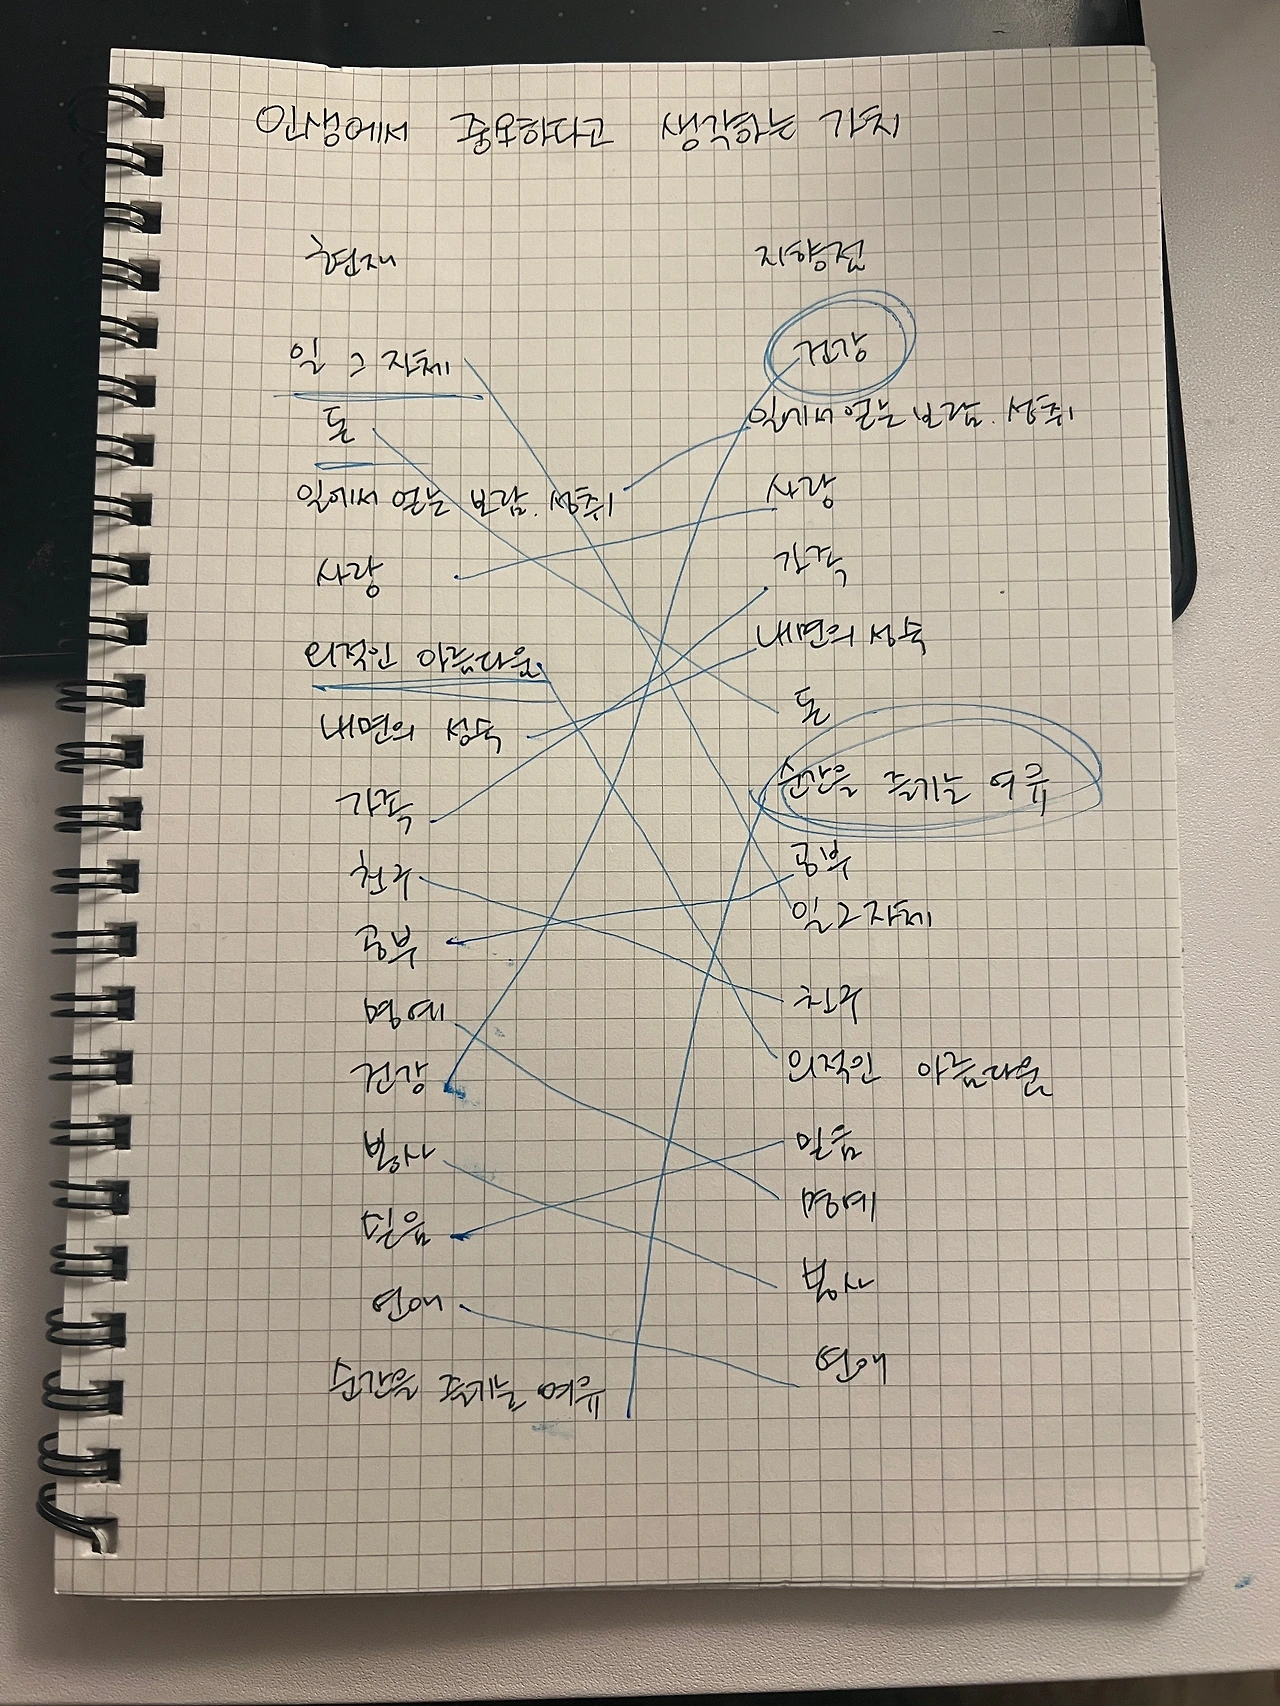 인생에서 중요하다고 생각하는 가치
현재
일 그 자체
돈
일에서 얻는 보람. 성취
사랑
외적인 아름다움
내면의 성숙
가족
친구
공부
명예
건강
봉사
믿음
연애
순간을 즐기는 여유
지향점
건강
일에서 얻는 보람. 성취
사랑
가족
내면의 성숙
돈
순간을 즐기는 여유
공부
일 그 자체
친구
외적인 아름다움
믿음
명예
봉사
연애